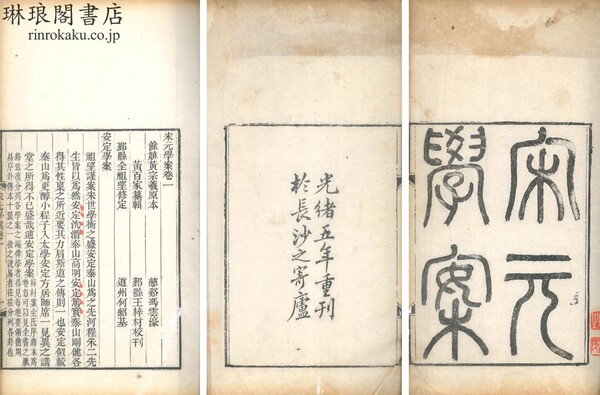 琳琅閣書店
rinrokaku.co.jp
宋元
學案
光緒五年重刊
於長沙之寄廬
宋元學案卷一
餘姚黃宗羲原本 慈谿馮雲濠
黃百家纂輯 鄞縣王梓材校刊
鄞縣全祖望修定 道州何紹基
安定學案
祖望謹案宋世學術之盛安定泰山爲之先河程朱二先
生皆以爲然安定沈潛泰山高明安定篤實泰山剛健各
得其性稟之所近要其力肩斯道之傳則一也安定似較
泰山爲更醇小程子入太學安定方居師席一見異之講
堂之所得不已盛哉述安定學案